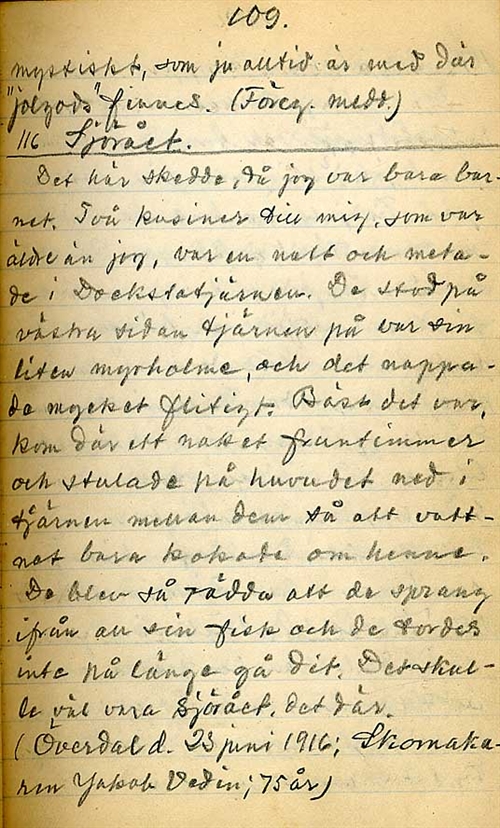 109.
mystiskt, som ju alltid är med där
"jolgods" finnes. (Föreg. medd.)
116 Sjörået.
Det här skedde, då jag var bara bar-
net. Två kusiner till mig, som var
äldre än jag, var en natt och meta-
de i Dockstatjärnen. De stod på
västra sidan tjärnen på var sin
liten myrholme, och det nappa-
de mycket flitigt. Bäst det var,
kom där ett naket fruntimmer
och stulade på huvudet ned i
tjärnen mellan dem så att vatt-
net bara kokade om henne.
De blev så rädda att de sprang
ifrån all sin fisk och de tordes
inte på länge gå dit. Det skul-
le väl vara Sjörået, det där.
(Överdal d. 23 juni 1916; Skomaka-
ren Jakob Vedin; 75 år)